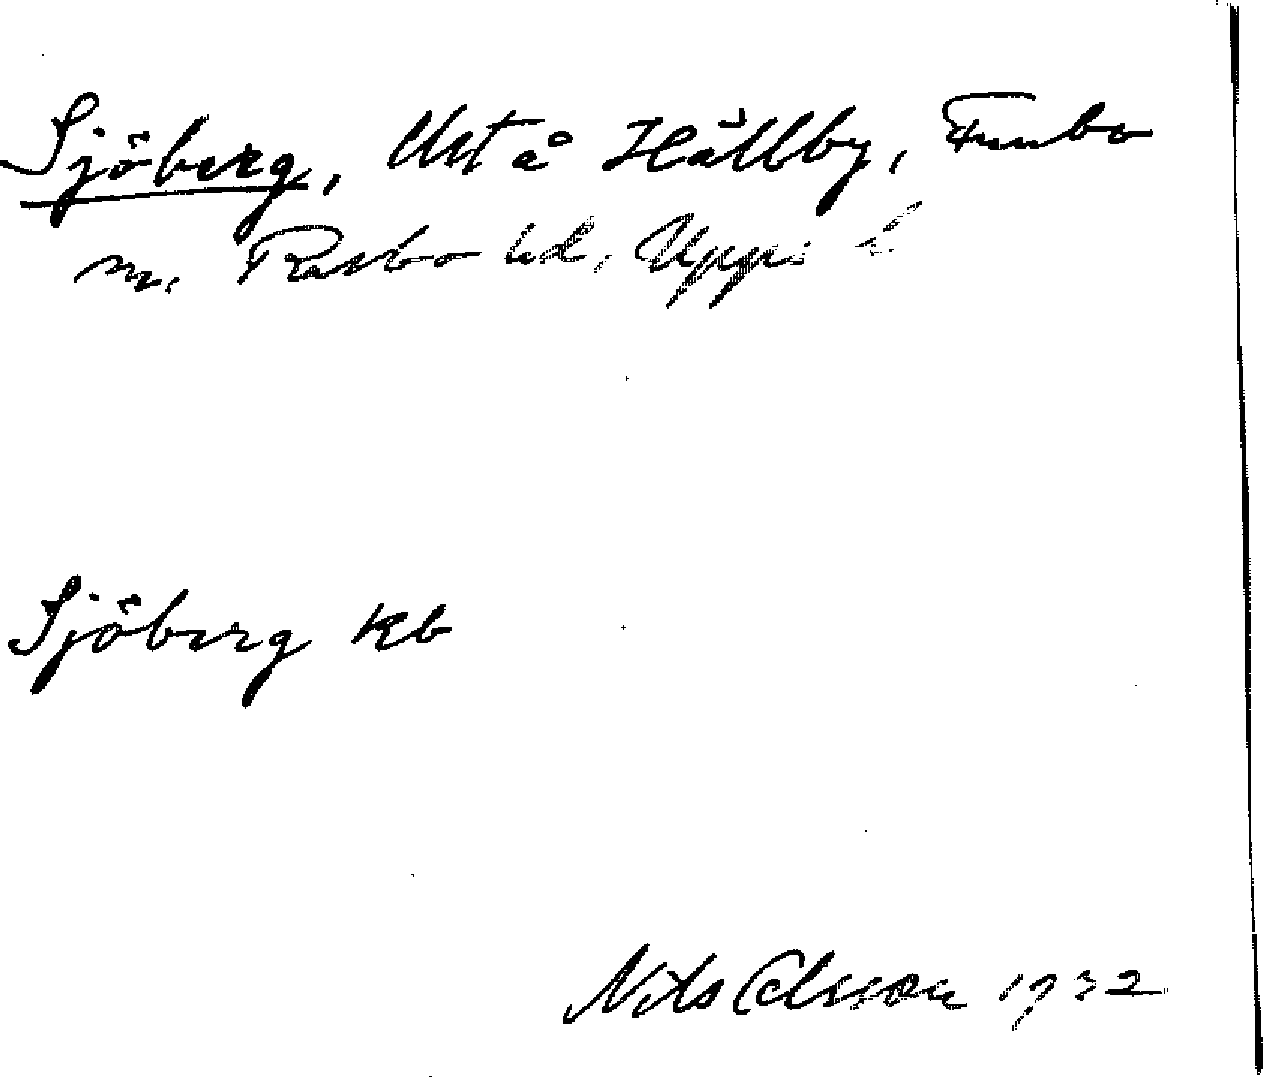 Sjöberg, å Hällby, Funbo
sn. Rasbo hd, Upps l.
Sjöberg kb
Nils 1932